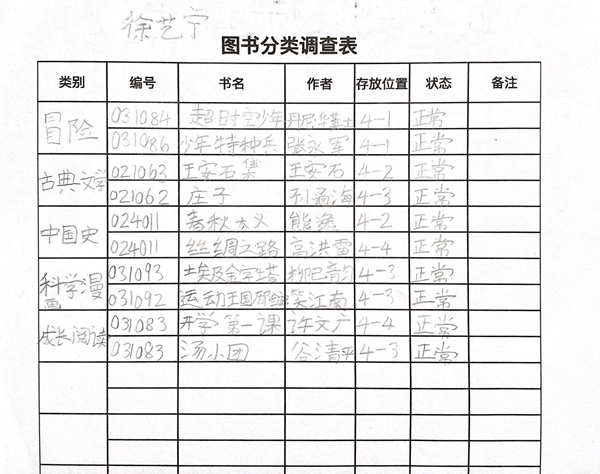 徐艺宁
图书分类调查表
类别 编号 书名 作者 存放位置 状态 备注
冒险 031084 超时空少年 4-1 正常
031086 少年特种兵 张永军 4-1 正常
古典文学 021063 王安石集 王安石 4-2 正常
021062 庄子 孙通海 4-3 正常
中国史 024011 春秋大义 熊逸 4-2 正常
024011 丝绸之路 高洪雷 4-4 正常
科学漫画 031093 埃及金字塔 4-3 正常
031092 运动王国 笑江南 4-3 正常
成长阅读 031083 开学第一课 许文广 4-4 正常
031083 汤小团 谷清平 4-3 正常